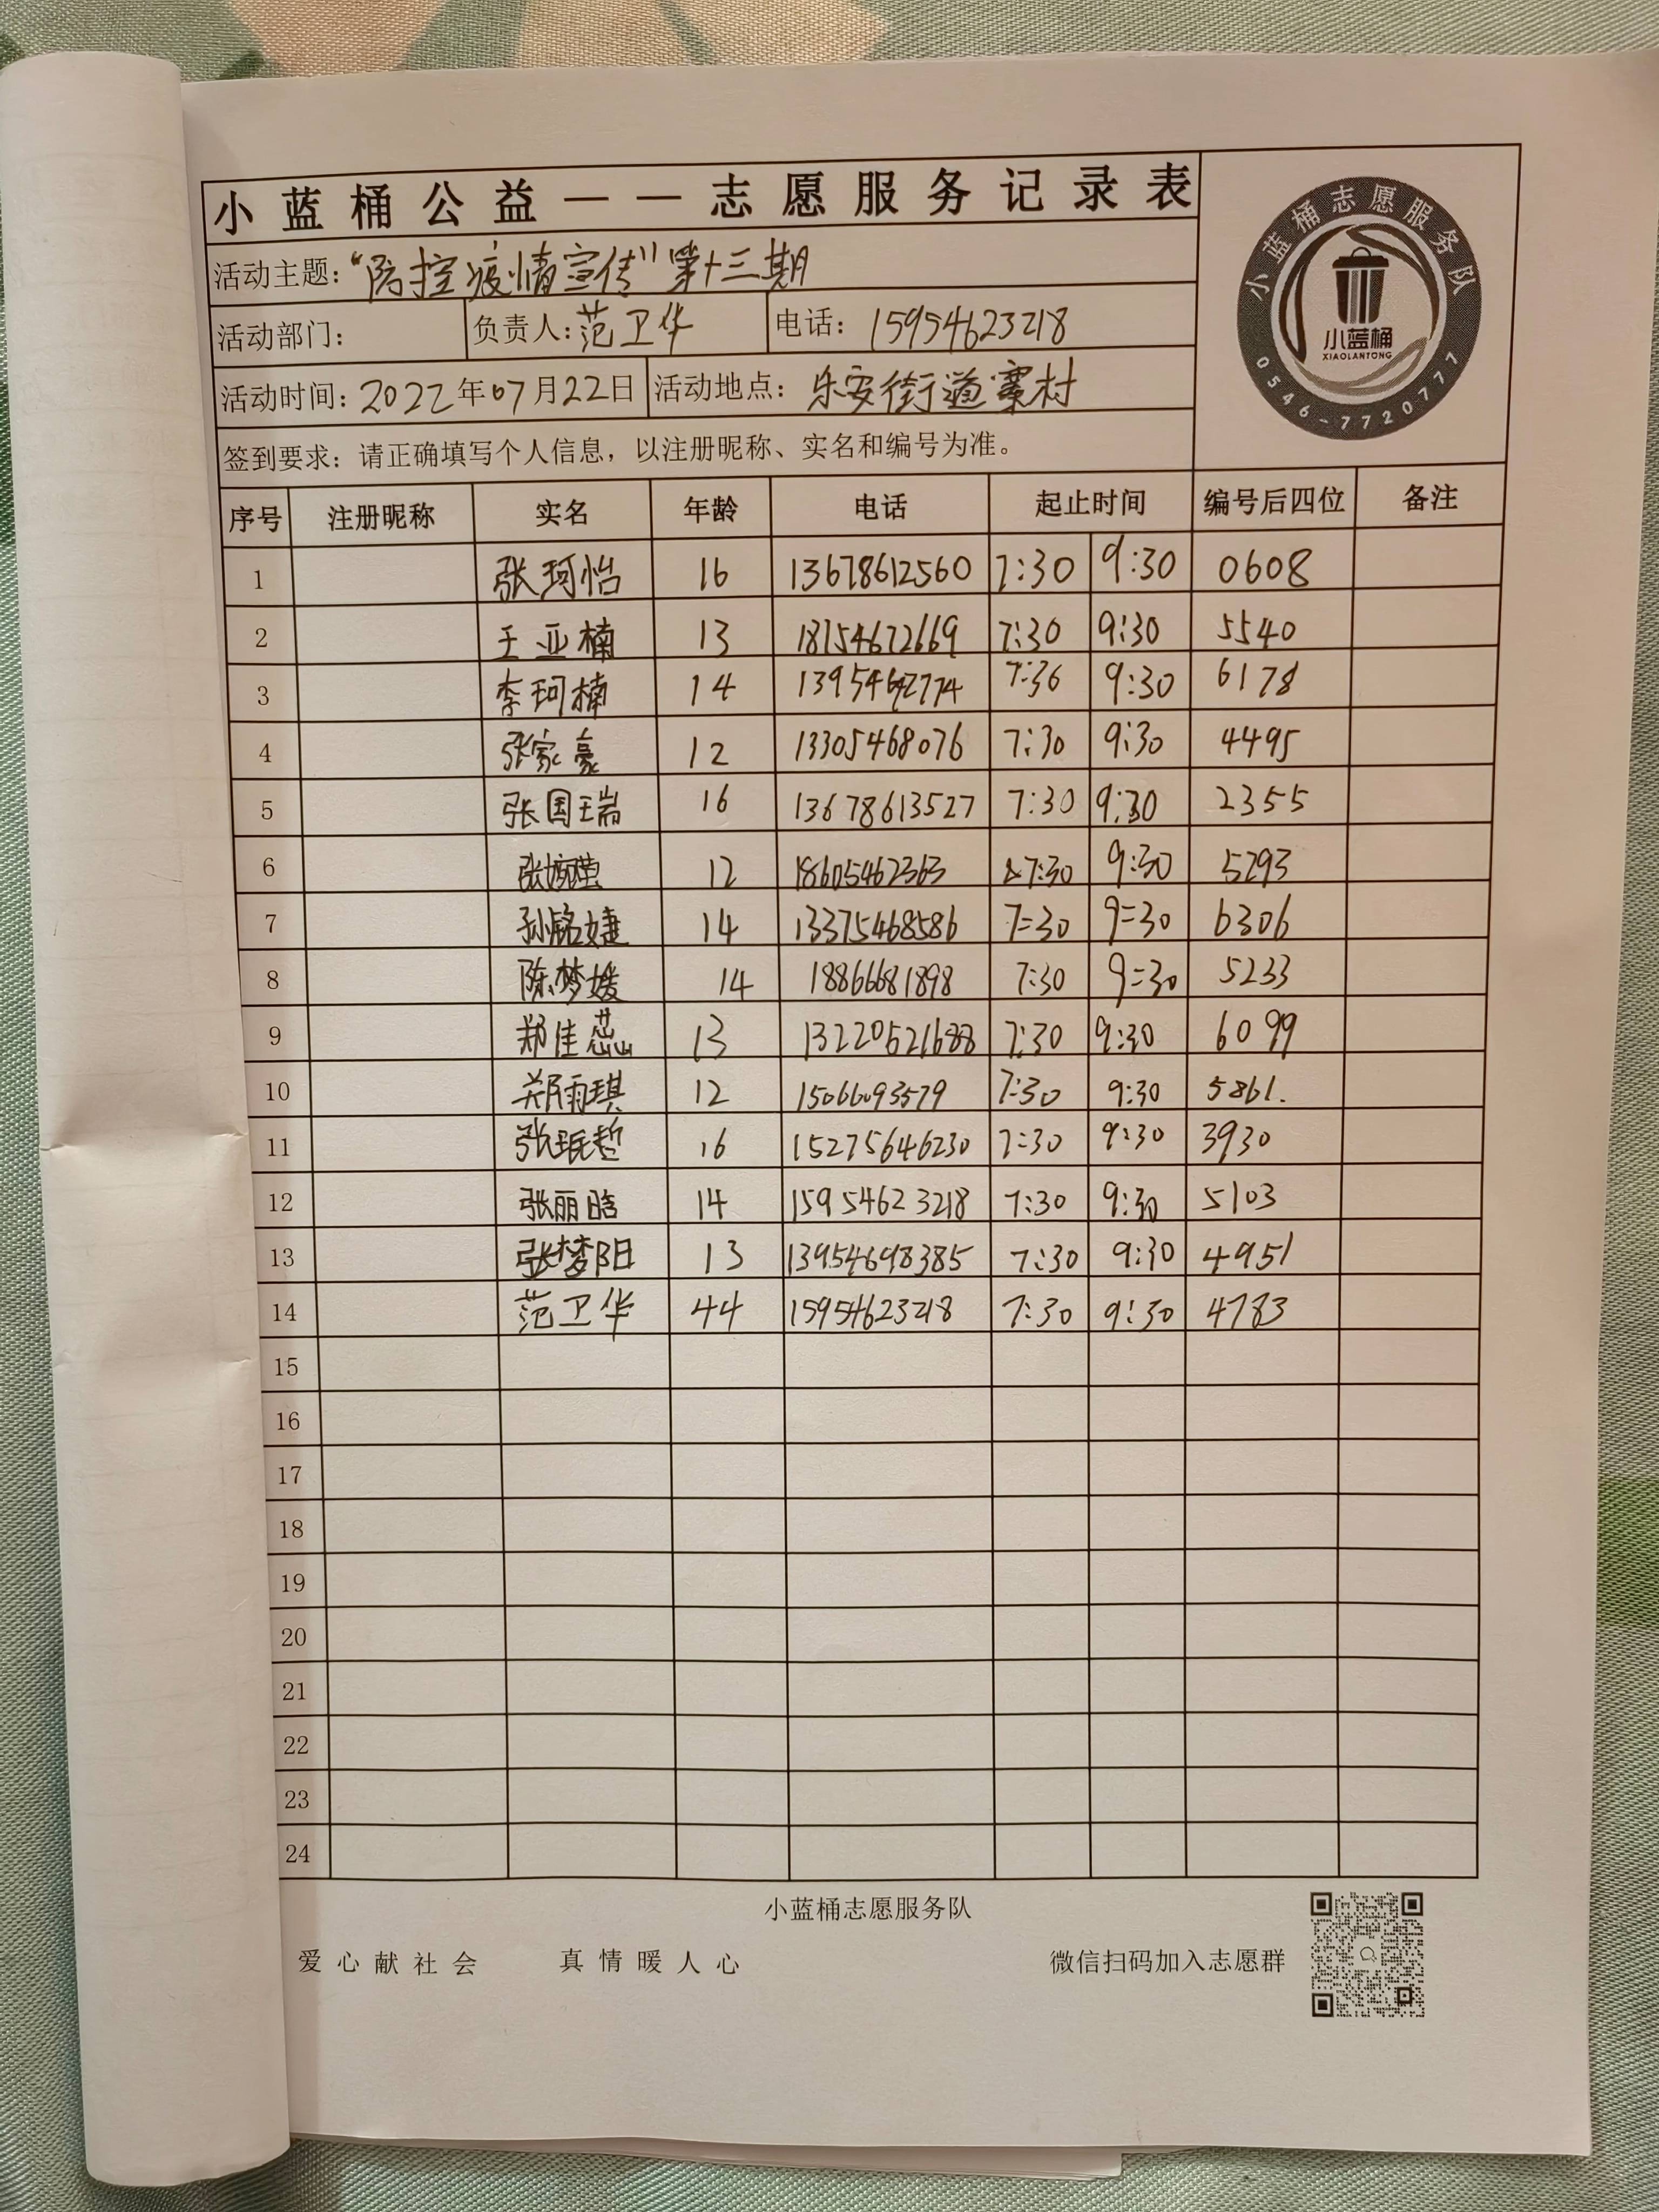 小蓝桶公益——志愿服务记录表
小蓝桶志愿服务队
小蓝桶
XIAOLANTONG
0546-7720777
活动主题：“防控疫情宣传”第十三期
活动部门： 负责人：范卫华 电话：15954623218
活动时间：2022年07月22日 活动地点：乐安街道寨村
签到要求：请正确填写个人信息，以注册昵称、实名和编号为准。
序号 注册昵称 实名 年龄 电话 起止时间 编号后四位 备注
1 张珂怡 16 13678612560 7:30 9:30 0608
2 王亚楠 13 18154672669 7:30 9:30 5540
3 李珂楠 14 7:36 9:30 6178
4 张家豪 12 13305468076 7:30 9:30 4495
5 张国瑞 16 13678613527 7:30 9:30 2355
6 12 18605462363 7:30 9:30 5293
7 孙铭婕 14 13375468586 7=30 9=30 6306
8 陈梦媛 14 18866681898 7:30 9=30 5233
9 郑佳蕊 13 7:30 9:30 6099
10 郑雨琪 12 15066093579 7:30 9:30 5861.
11 张珉哲 16 15275646230 7:30 9:30 3930
12 张丽晗 14 15954623218 7:30 9:30 5103
13 张梦阳 13 13954698385 7:30 9:30 4951
14 范卫华 44 15954623218 7:30 9:30 4783
15
16
17
18
19
20
21
22
23
24
小蓝桶志愿服务队
爱心献社会 真情暖人心 微信扫码加入志愿群